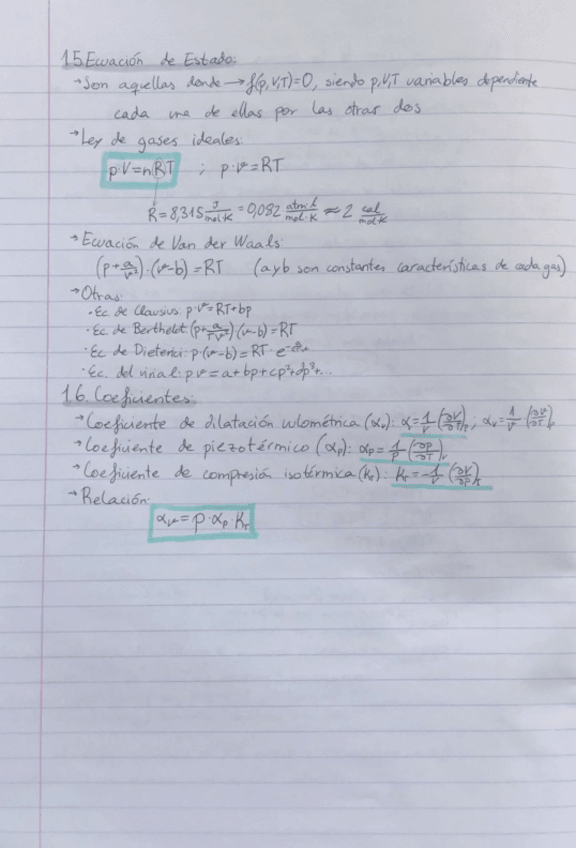 1.5 Ecuación de Estado:
→ Son aquellas donde → f(p,V,T)=0, siendo p,V,T variables dependiente
cada una de ellas por las otras dos
→ Ley de gases ideales:
p·V=nRT ; p·v=RT
R=8,315 J/mol·K = 0,082 atm·l/mol·K ≈ 2 cal/mol·K
→ Ecuación de Van der Waals:
(p+a/v²)·(v-b)=RT (a y b son constantes características de cada gas)
→ Otras:
· Ec. de Clausius: p·v=RT+bp
· Ec. de Berthelot: (p+a/Tv²)·(v-b)=RT
· Ec. de Dieterici: p·(v-b)=RT·e
· Ec. del virial: p·v=a+bp+cp²+dp³+...
1.6. Coeficientes:
→ Coeficiente de dilatación volométrica (αv): α=1/V (∂V/∂T)p, αv=1/v (∂v/∂T)p
→ Coeficiente de piezotérmico (αp): αp=1/p (∂p/∂T)v
→ Coeficiente de compresión isotérmica (KT): KT=-1/v (∂v/∂p)
→ Relación:
αv=p·αp·KT